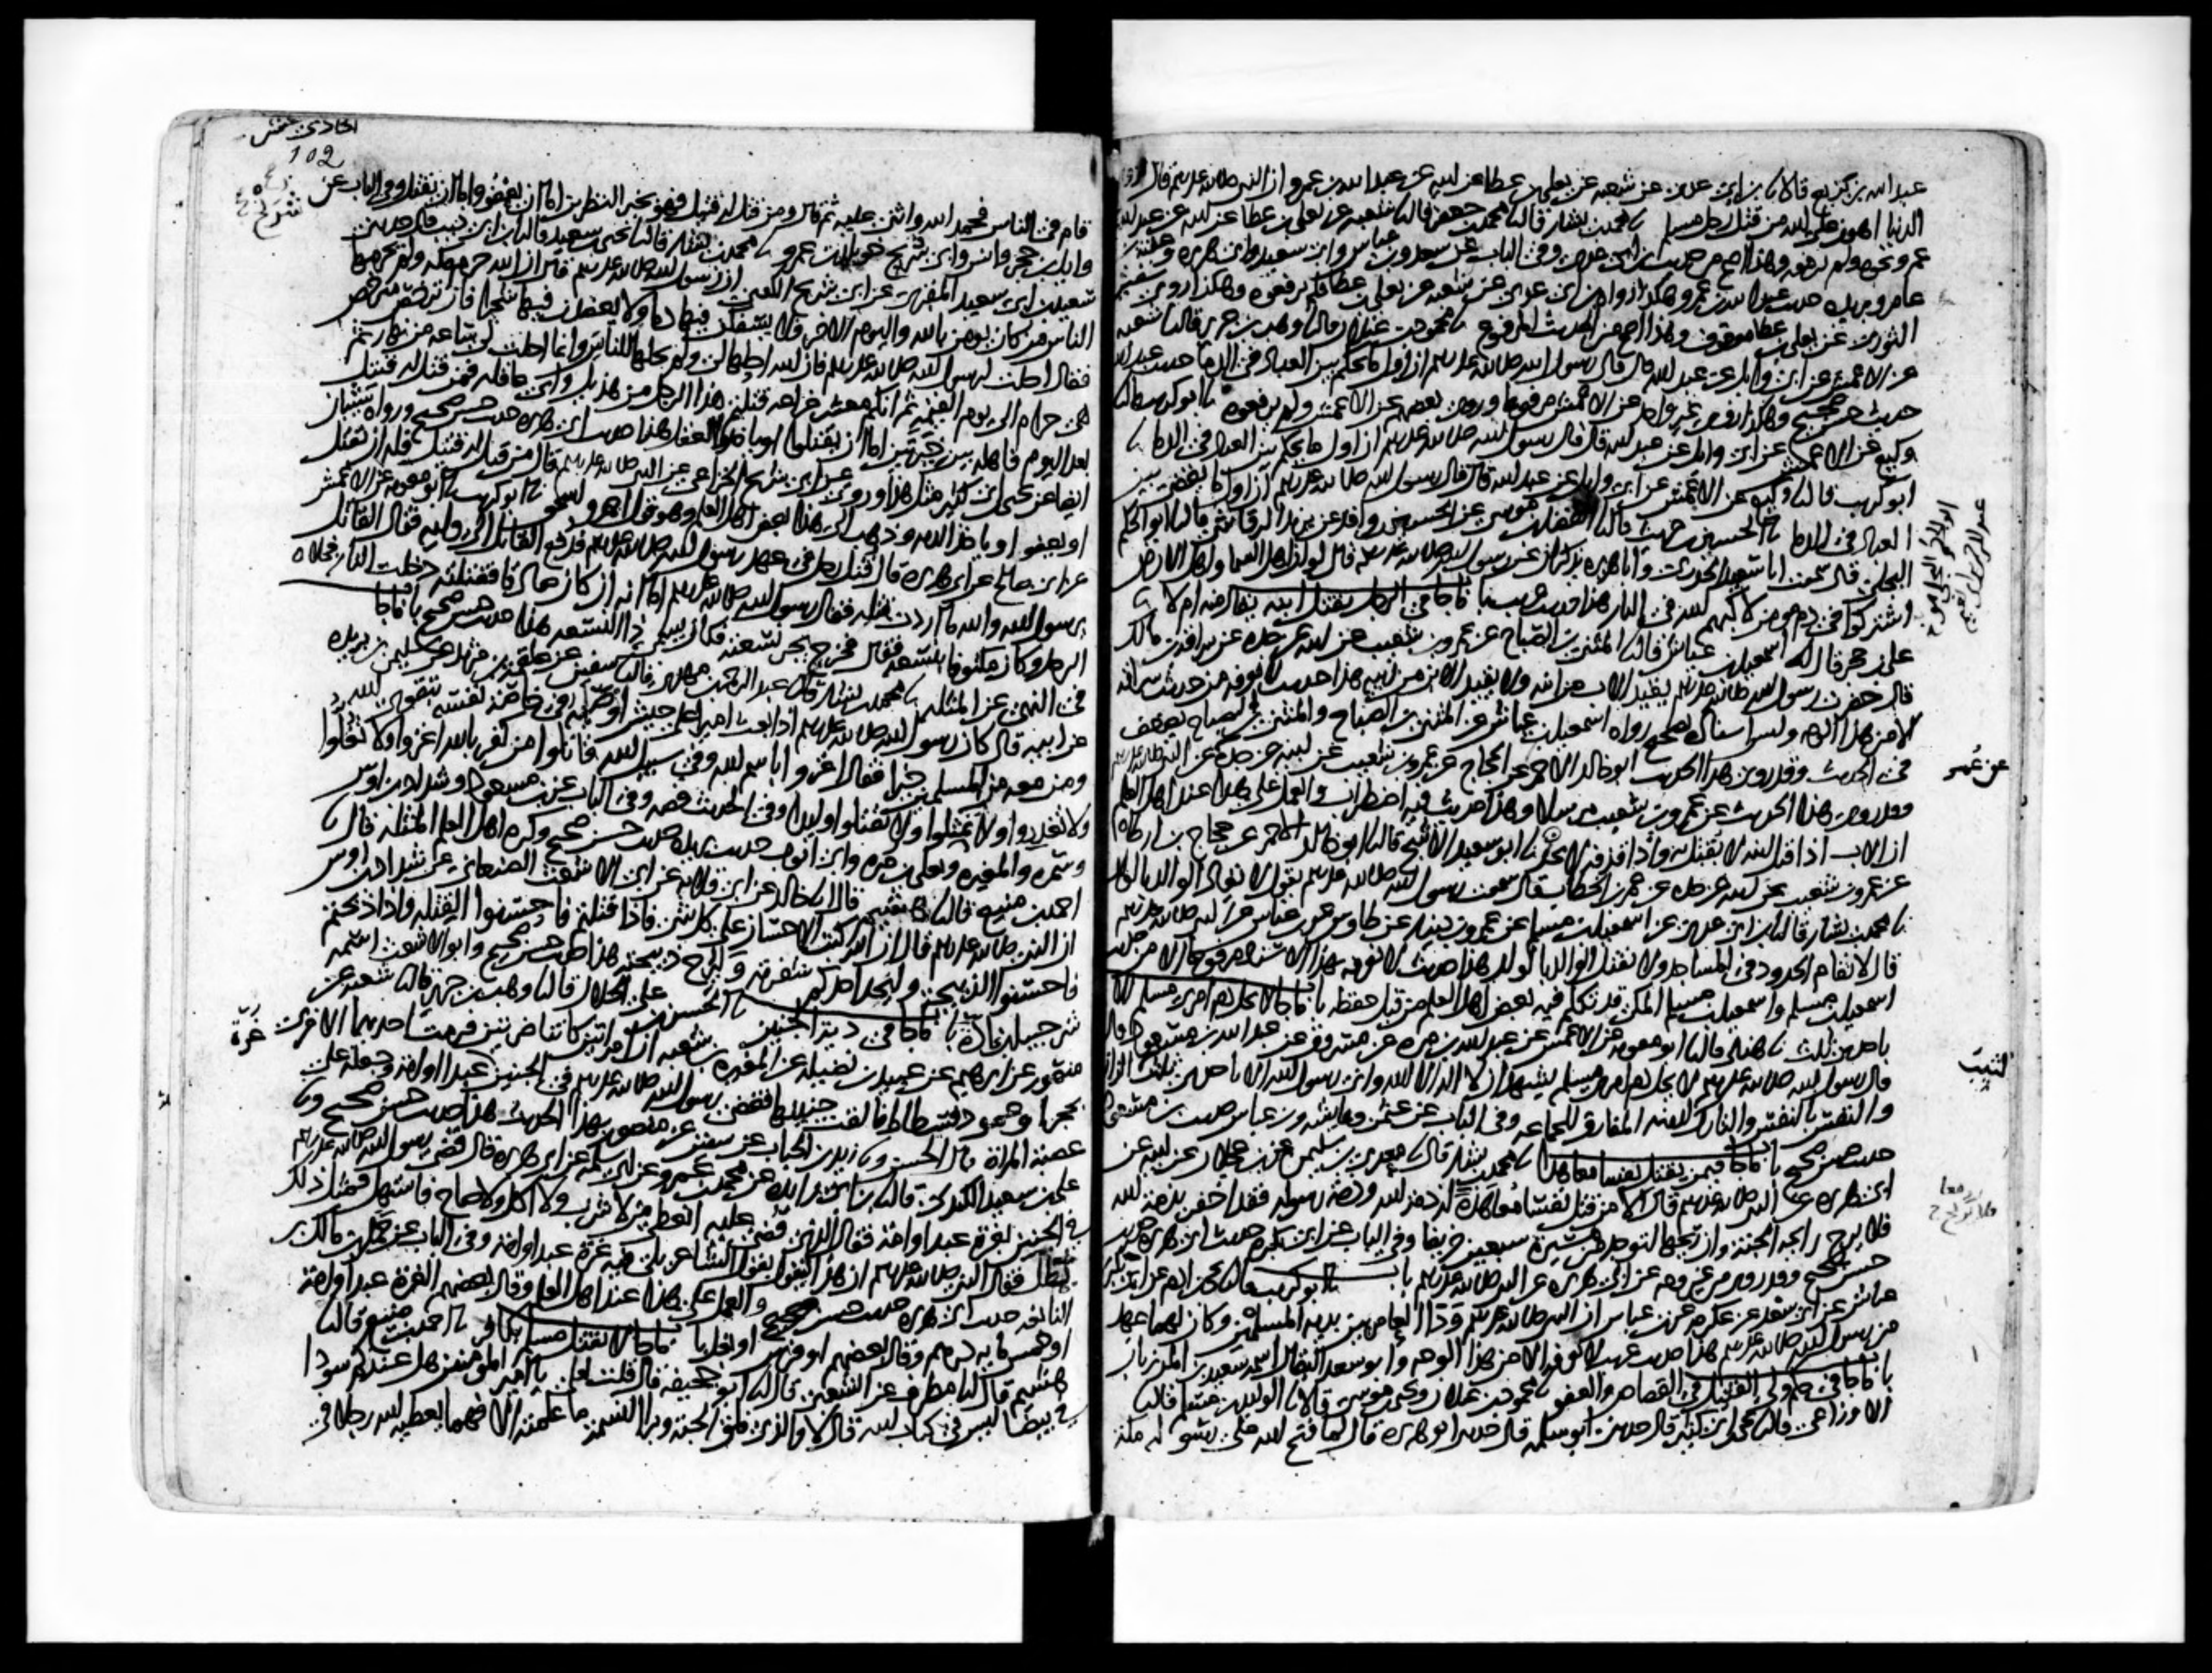 عبد الله بن بزيع قالا نا ابن ابي عدي عن شعبة عن يعلى بن عطا عن ابيه عن عبد الله بن عمرو ان النبي صلى الله عليه وسلم قال
الدنيا اهون على الله من قتل رجل مسلم نا محمد بن بشار قال نا محمد بن جعفر قال نا شعبة عن يعلى بن عطا عن ابيه عن عبد الله بن
عمرو نحوه ولم يرفعه وهذا اصح من حديث ابن ابي عدي وفي الباب عن سعد وابن عباس وابي سعيد وابي هريره وعقبة بن
عامر وبريده حديث عبد الله بن عمرو هكذا رواه ابن ابي عدي عن شعبة عن يعلى بن عطا فلم يرفعوه وهكذا روى سفين
الثوري عن يعلى بن عطا موقوف وهذا اصح من الحديث المرفوع نا محمود بن غيلان قال نا وهب بن جرير قال نا شعبة
عن الاعمش عن ابي وايل عن عبد الله قال قال رسول الله صلى الله عليه وسلم ان اول ما يحكم بين العباد في الدما حديث عبد الله
حديث حسن صحيح وهكذا روى غير واحد عن الاعمش مرفوعا وروى بعضهم عن الاعمش ولم يرفعوه نا ابو كريب قال نا
وكيع عن الاعمش عن ابي وايل عن عبد الله قال قال رسول الله صلى الله عليه وسلم ان اول ما يحكم بين العباد في الدما نا
ابو كريب قال نا وكيع عن الاعمش عن ابي وايل عن عبد الله قال قال رسول الله صلى الله عليه وسلم ان اول ما يقضى بين
العباد في الدما نا الحسين بن حريث قال نا الفضل بن موسى عن الحسين بن واقد عن يزيد الرقاشي قال نا ابو الحكم
البجلي قال سمعت ابا سعيد الخدري وابا هريره يذكران عن رسول الله صلى الله عليه وسلم قال لو ان اهل السما واهل الارض
اشتركوا في دم مومن لاكبهم الله في النار هذا حديث غريب باب ما جا في الرجل يقتل ابنه يقاد منه ام لا نا
علي بن حجر قال نا اسمعيل بن عياش قال نا المثنى بن الصباح عن عمرو بن شعيب عن ابيه عن جده عن سراقة بن مالك
قال حضرت رسول الله صلى الله عليه وسلم يقيد الاب من ابنه ولا يقيد الابن من ابيه هذا حديث لا نعرفه من حديث سراقه
الا من هذا الوجه وليس اسناده بصحيح رواه اسمعيل بن عياش عن المثنى بن الصباح والمثنى بن الصباح يضعف
في الحديث وقد روى هذا الحديث ابو خالد الاحمر عن الحجاج عن عمرو بن شعيب عن ابيه عن جده عن النبي صلى الله عليه وسلم
وقد روي هذا الحديث عن عمرو بن شعيب مرسلا وهذا حديث فيه اضطراب والعمل على هذا عند اهل العلم
ان الاب اذا قتل ابنه لا يقتل به واذا قذفه لا يحد نا ابو سعيد الاشج قال نا ابو خالد الاحمر عن حجاج بن ارطاه
عن عمرو بن شعيب عن ابيه عن جده عن عمر بن الخطاب قال سمعت رسول الله صلى الله عليه وسلم يقول لا يقاد الوالد بالولد
نا محمد بن بشار قال نا ابن ابي عدي عن اسمعيل بن مسلم عن عمرو بن دينار عن طاوس عن ابن عباس عن النبي صلى الله عليه وسلم
قال لا تقام الحدود في المساجد ولا يقتل الوالد بالولد هذا حديث لا نعرفه بهذا الاسناد مرفوعا الا من حديث
اسمعيل بن مسلم واسمعيل بن مسلم المكي قد تكلم فيه بعض اهل العلم من قبل حفظه باب ما جا لا يحل دم امرئ مسلم الا
باحدى ثلاث نا هناد قال نا ابو معويه عن الاعمش عن عبد الله بن مره عن مسروق عن عبد الله بن مسعود قال
قال رسول الله صلى الله عليه وسلم لا يحل دم امرئ مسلم يشهد ان لا اله الا الله واني رسول الله الا باحدى ثلاث الزاني
والنفس بالنفس والتارك لدينه المفارق للجماعه وفي الباب عن عثمن وعايشه وابن عباس حديث ابن مسعود
حديث حسن صحيح باب ما جا فيمن يقتل نفسا معاهدا نا محمد بن بشار قال نا معدي بن سليمن عن ابن عجلان عن ابيه عن
ابي هريره عن النبي صلى الله عليه وسلم قال الا من قتل نفسا معاهدة له ذمة الله وذمة رسوله فقد اخفر بذمة الله
فلا يرح رايحة الجنة وان ريحها لتوجد من مسيرة سبعين خريفا وفي الباب عن ابي بكره حديث ابي هريره حديث
حسن صحيح وقد روي من غير وجه عن ابي هريره عن النبي صلى الله عليه وسلم باب نا ابو كريب قال نا يحيى بن ادم عن ابي بكر بن
عياش عن ابي سعد عن عكرمه عن ابن عباس ان النبي صلى الله عليه وسلم ودى العامريين بدية المسلمين وكان لهما عهد
من رسول الله صلى الله عليه وسلم هذا حديث غريب لا نعرفه الا من هذا الوجه وابو سعد البقال اسمه سعيد بن المرزبان
باب ما جا في حكم ولي القتيل في القصاص والعفو نا محمود بن غيلان ويحيى بن موسى قالا نا الوليد بن مسلم قال نا
الاوزاعي قال نا يحيى بن ابي كثير قال حدثني ابو سلمه قال حدثنا ابو هريره قال لما فتح الله على رسوله مكة
عن عمر
الثيب
الحادي عشر
102
قام في الناس فحمد الله واثنى عليه ثم قال ومن قتل له قتيل فهو بخير النظرين اما ان يعفو واما ان يقتل وفي الباب عن
وايل بن حجر وانس وابي شريح خويلد بن عمرو نا محمد بن بشار قال نا يحيى بن سعيد قال نا ابن ابي ذيب قال حدثني
سعيد بن ابي سعيد المقبري عن ابي شريح الكعبي ان رسول الله صلى الله عليه وسلم قال ان الله حرم مكه ولم يحرمها
الناس من كان يومن بالله واليوم الاخر فلا يسفكن فيها دما ولا يعضدن فيها شجرا فان ترخص مترخص
فقال احلت لرسول الله صلى الله عليه وسلم فان الله احلها لي ولم يحلها للناس وانما احلت لي ساعه من نهار ثم
هي حرام الى يوم القيمه ثم انكم معشر خزاعه قتلتم هذا الرجل من هذيل واني عاقله فمن قتل له قتيل
بعد اليوم فاهله بين خيرتين اما ان يقتلوا او ياخذوا العقل هذا حديث حسن صحيح وحديث ابي هريره حديث حسن صحيح ورواه شيبان
ايضا عن يحيى بن ابي كثير مثل هذا وروي عن ابي شريح الخزاعي عن النبي صلى الله عليه وسلم قال من قتل له قتيل فله ان يقتل
او يعفو او ياخذ الديه وذهب الى هذا بعض اهل العلم وهو قول احمد واسحق نا ابو كريب نا ابو معويه عن الاعمش
عن ابي صالح عن ابي هريره قال قتل رجل في عهد رسول الله صلى الله عليه وسلم فدفع القاتل الى وليه فقال القاتل
يرسول الله والله ما اردت قتله فقال رسول الله صلى الله عليه وسلم اما انه ان كان صادقا فقتلته دخلت النار فخلاه
الرجل وكان مكتوفا بنسعة فقال فخرج يجر نسعته فكان يسمى ذا النسعه هذا حديث حسن صحيح باب ما جا
في النهي عن المثله نا محمد بن بشار قال نا عبد الرحمن بن مهدي قال نا سفين عن علقمة بن مرثد عن سليمن بن بريده
عن ابيه قال كان رسول الله صلى الله عليه وسلم اذا بعث اميرا على جيش اوصاه في خاصة نفسه بتقوى الله
ومن معه من المسلمين خيرا فقال اغزوا باسم الله وفي سبيل الله قاتلوا من كفر بالله اغزوا ولا تغلوا
ولا تغدروا ولا تمثلوا ولا تقتلوا وليدا وفي الحديث قصه وفي الباب عن ابن مسعود وشداد بن اوس
وسمره والمغيره ويعلى بن مره وابي ايوب حديث بريده حديث حسن صحيح وكره اهل العلم المثله قال نا
احمد بن منيع قال نا هشيم قال نا خالد عن ابي قلابه عن ابي الاشعث الصنعاني عن شداد بن اوس
ان النبي صلى الله عليه وسلم قال ان الله كتب الاحسان على كل شي فاذا قتلتم فاحسنوا القتله واذا ذبحتم
فاحسنوا الذبحة وليحد احدكم شفرته وليرح ذبيحته هذا حديث حسن صحيح وابو الاشعث اسمه
شرحبيل بن ادة باب ما جا في دية الجنين نا الحسن بن علي الخلال قال نا وهب بن جرير قال نا شعبه عن
منصور عن ابرهيم عن عبيد بن نضيله عن المغيره بن شعبه ان امراتين كانتا ضرتين فرمت احديهما الاخرى
بحجر او عمود فسطاط فالقت جنينها فقضى رسول الله صلى الله عليه وسلم في الجنين غرة عبد او امه وجعله على
عصبة المراة قال الحسن ونا زيد بن الحباب عن سفين عن منصور بهذا الحديث هذا حديث حسن صحيح ونا
علي بن سعيد الكندي قال نا ابن ابي زايده عن محمد بن عمرو عن ابي سلمه عن ابي هريره قال قضى رسول الله صلى الله عليه وسلم
في الجنين بغرة عبد او امه فقال الذي قضي عليه انعطي من لا شرب ولا اكل ولا صاح فاستهل فمثل ذلك
يطل فقال النبي صلى الله عليه وسلم ان هذا ليقول بقول الشاعر بلى فيه غرة عبد او امه وفي الباب عن حمل بن مالك بن
النابغه حديث ابي هريره حديث حسن صحيح والعمل على هذا عند اهل العلم وقال بعضهم الغرة عبد او امه
او خمس مايه درهم وقال بعضهم او فرس او بغل باب ما جا لا يقتل مسلم بكافر نا احمد بن منيع قال نا
هشيم قال نا مطرف عن الشعبي قال نا ابو جحيفه قال قلت لعلي يا امير المومنين هل عندكم سودا
في بيضا ليس في كتاب الله قال لا والذي فلق الحبة وبرا النسمة ما علمته الا فهما يعطيه الله رجلا في